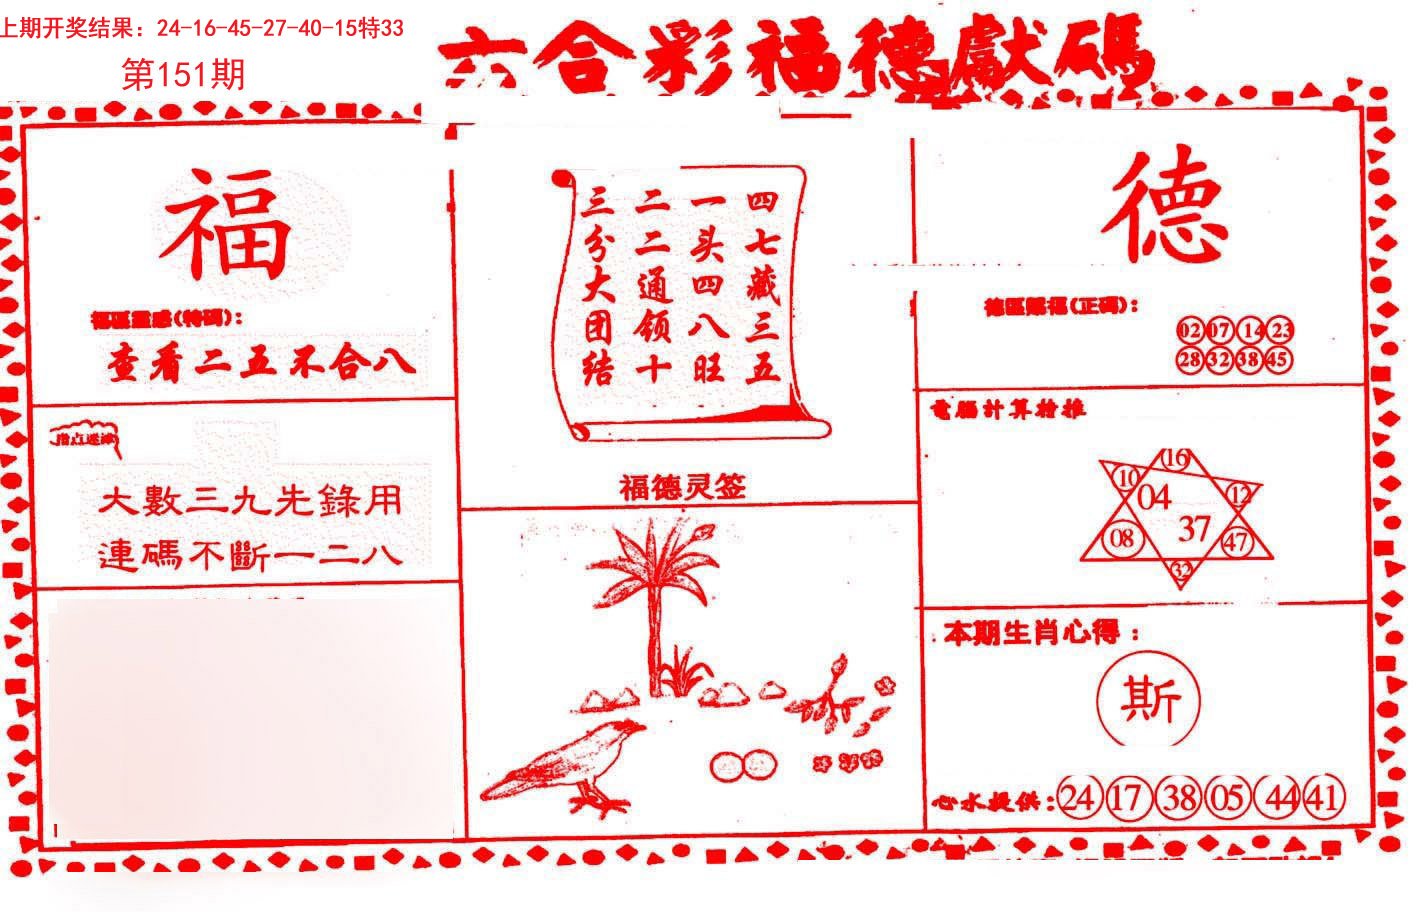 上期开奖结果：24-16-45-27-40-15特33
第151期
六合彩福德獻碼
福
福區靈感(特碼)：
查看二五不合八
指点迷津
大數三九先錄用
連碼不斷一二八
四七藏三五
一头四八旺
二二通领十
三分大团结
福德灵签
德
德區賜福(正碼)：
02 07 14 23
28 32 38 45
電腦計算特推
16
10
12
04
37
08
47
32
本期生肖心得：
斯
心水提供：24 17 38 05 44 41